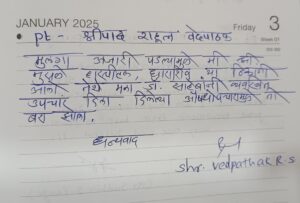 JANUARY 2025
Friday 3
Week 01
pt - श्रीपाद राहूल वेदपाठक
मुलगा अजारी पडल्यामुळे मी
हॉस्पीटल, धाराशीव या ठिकाणी
आलो तेथे मला डॉ. साहेबांनी व्यवस्थित
उपचार दिला. दिलेल्या औषधोपचारामुळे तो
बरा झाला.
धन्यवाद
shr. vedpathak R S